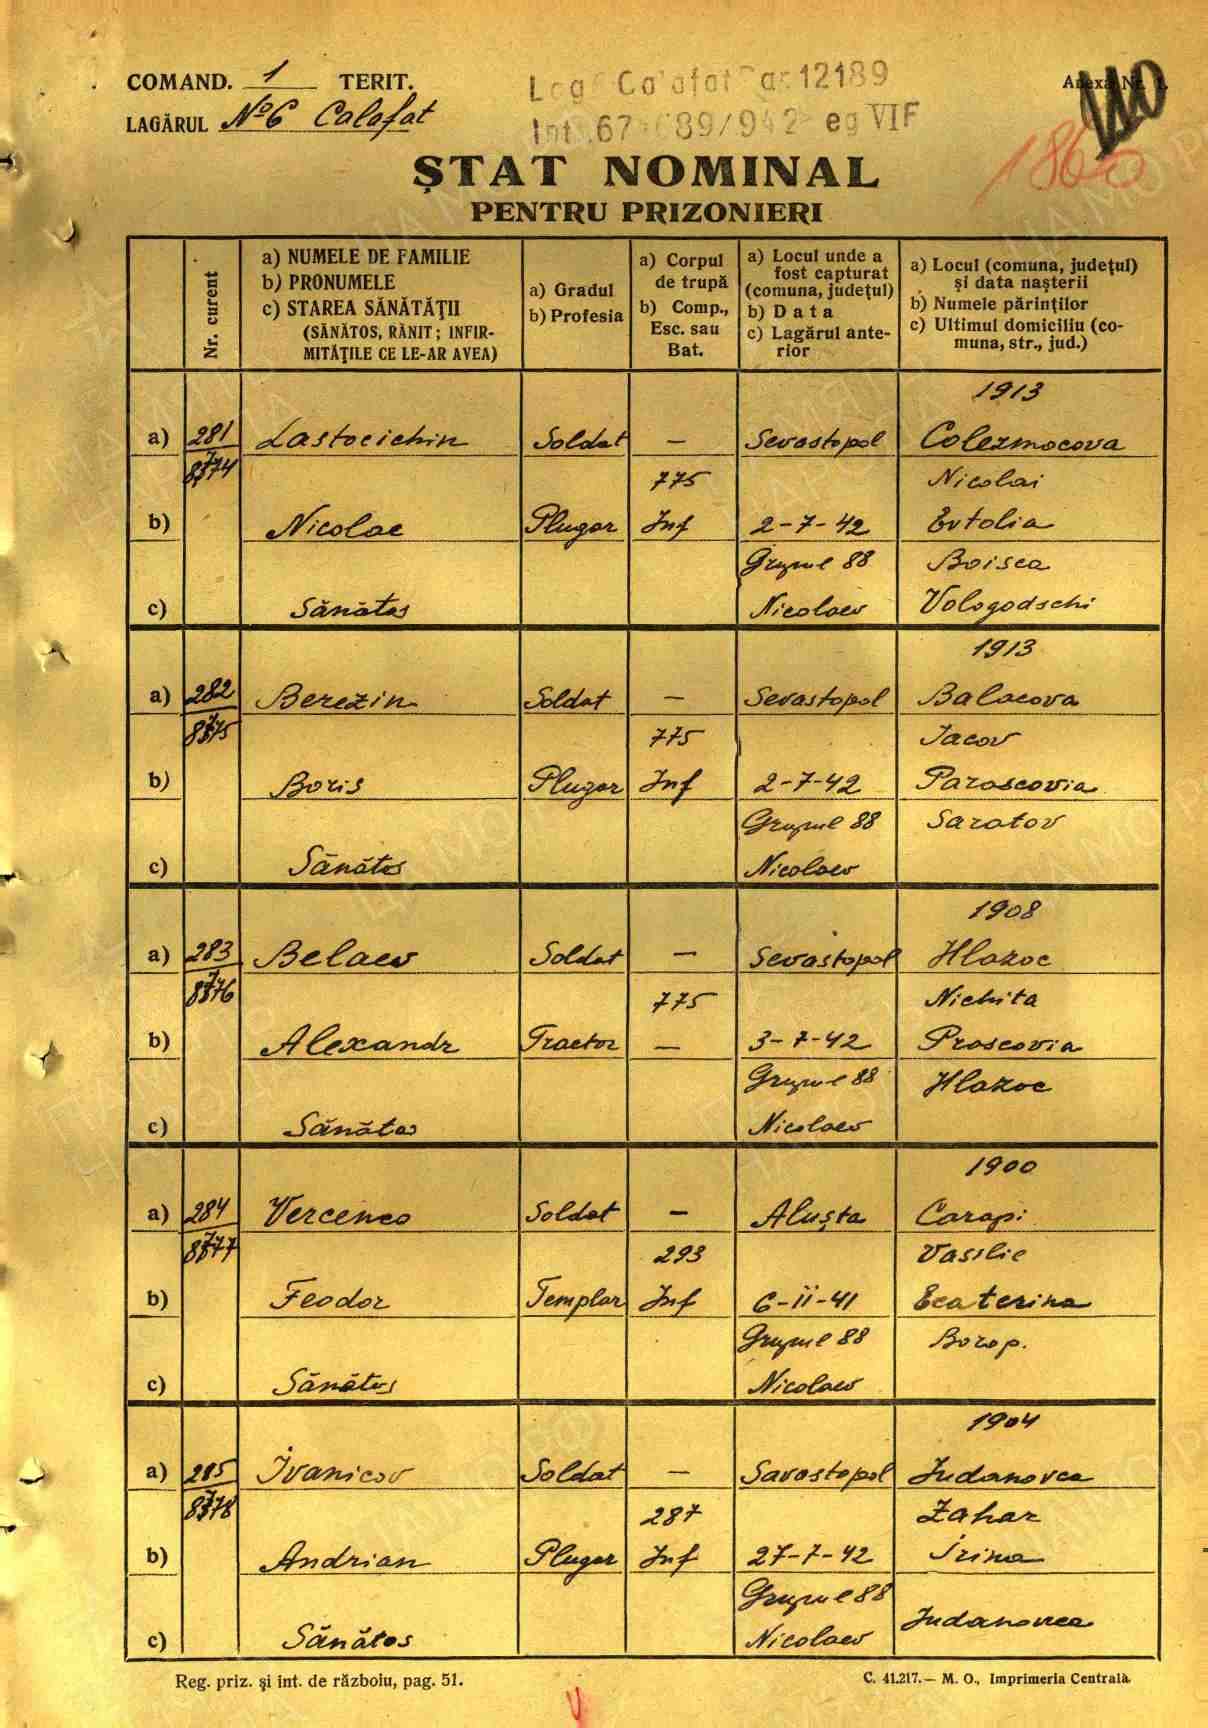 COMAND. 1 TERIT.
LAGĂRUL No 6 Calafat
Lag 6 Calafat 12189
Int. 67 689/942 eg VIF
Anexa Nr. 1.
110
1860
ŞTAT NOMINAL
PENTRU PRIZONIERI
Nr. curent
a) NUMELE DE FAMILIE
b) PRONUMELE
c) STAREA SĂNĂTĂŢII
(SĂNĂTOS, RĂNIT; INFIR-
MITĂŢILE CE LE-AR AVEA)
a) Gradul
b) Profesia
a) Corpul
de trupă
b) Comp.,
Esc. sau
Bat.
a) Locul unde a
fost capturat
(comuna, judeţul)
b) Data
c) Lagărul ante-
rior
a) Locul (comuna, judeţul)
şi data naşterii
b) Numele părinţilor
c) Ultimul domiciliu (co-
muna, str., jud.)
1913
a) 281 Lastocichin Soldat — Sevastopol Colezmocova
775 Nicolai
b) Nicolae Plugar Inf 2-7-42 Evtolia
Grupul 88 Boisca
c) Sănătos Nicolaev Vologodschi
1913
a) 282 Berezin Soldat — Sevastopol Balacova
775 Iacov
b) Boris Plugar Inf 2-7-42 Parascovia
Grupul 88 Saratov
c) Sănătos Nicolaev
1908
a) 283 Belaev Soldat — Sevastopol Hlazoc
775 Nichita
b) Alexandr Tractor — 3-7-42 Proscovia
Grupul 88 Hlazoc
c) Sănătos Nicolaev
1900
a) 284 Vercenco Soldat — Aluşta Carapi
293 Vasilie
b) Feodor Templar Inf 6-11-41 Ecaterina
Grupul 88 Borop.
c) Sănătos Nicolaev
1904
a) 285 Ivanicov Soldat — Savostopol Iudanovca
287 Zahar
b) Andrian Plugar Inf 27-7-42 Irina
Grupul 88
c) Sănătos Nicolaev Iudanovca
Reg. priz. şi int. de războiu, pag. 51.
C. 41.217.— M. O., Imprimeria Centrală.